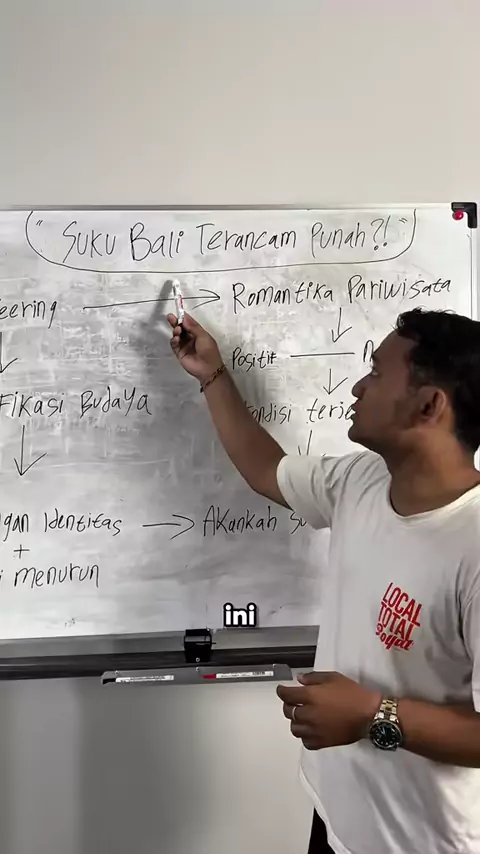 "Suku Bali Terancam Punah?!"
eering → Romantika Pariwisata
Positif — n
Fikasi Budaya
ondisi terje
gan Identitas → Akankah Su
+
i menurun
ini
LOCAL
TOTAL
Loyal